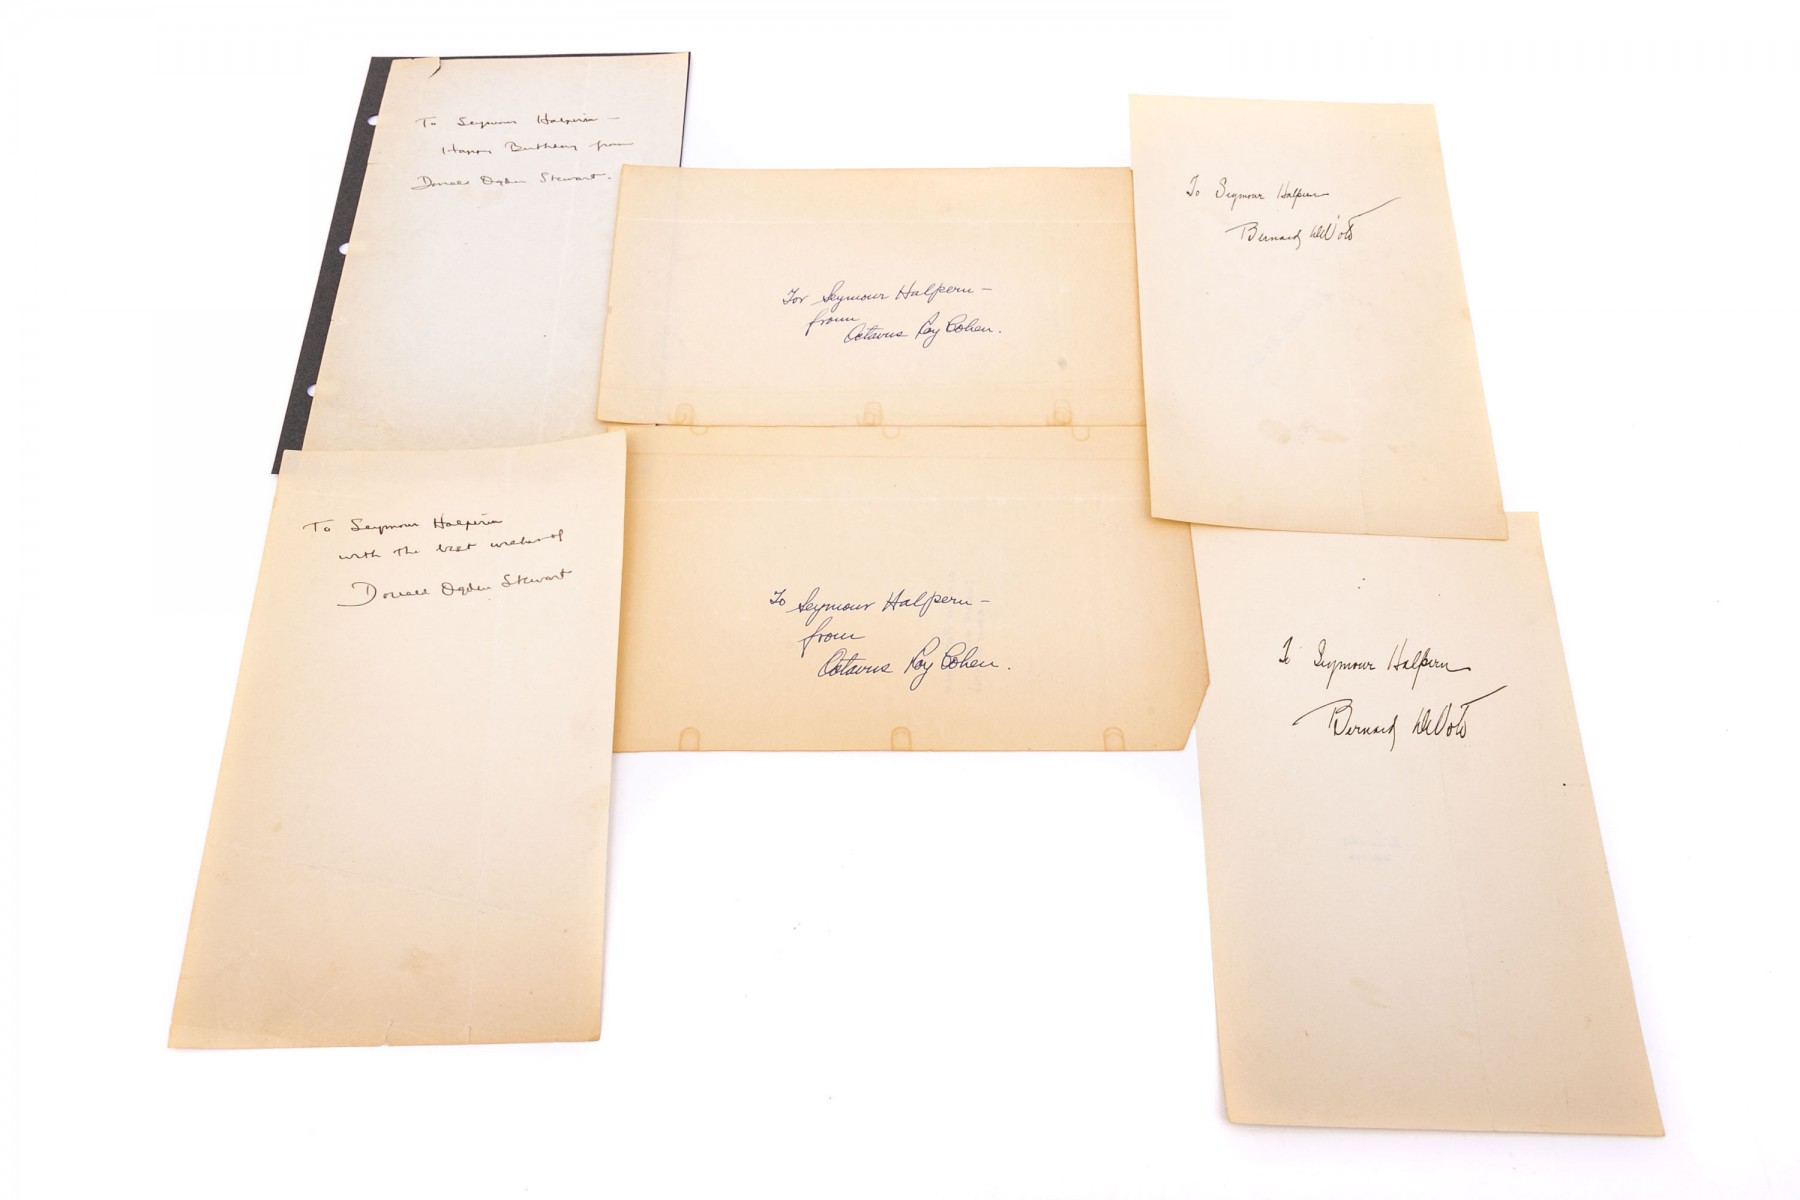 To Seymour Halpern —
Happy Birthday from
Donald Ogden Stewart.
For Seymour Halpern —
from
Octavus Roy Cohen.
To Seymour Halpern
Bernard DeVoto
To Seymour Halpern
with the best wishes of
Donald Ogden Stewart
To Seymour Halpern —
from
Octavus Roy Cohen.
To Seymour Halpern
Bernard DeVoto